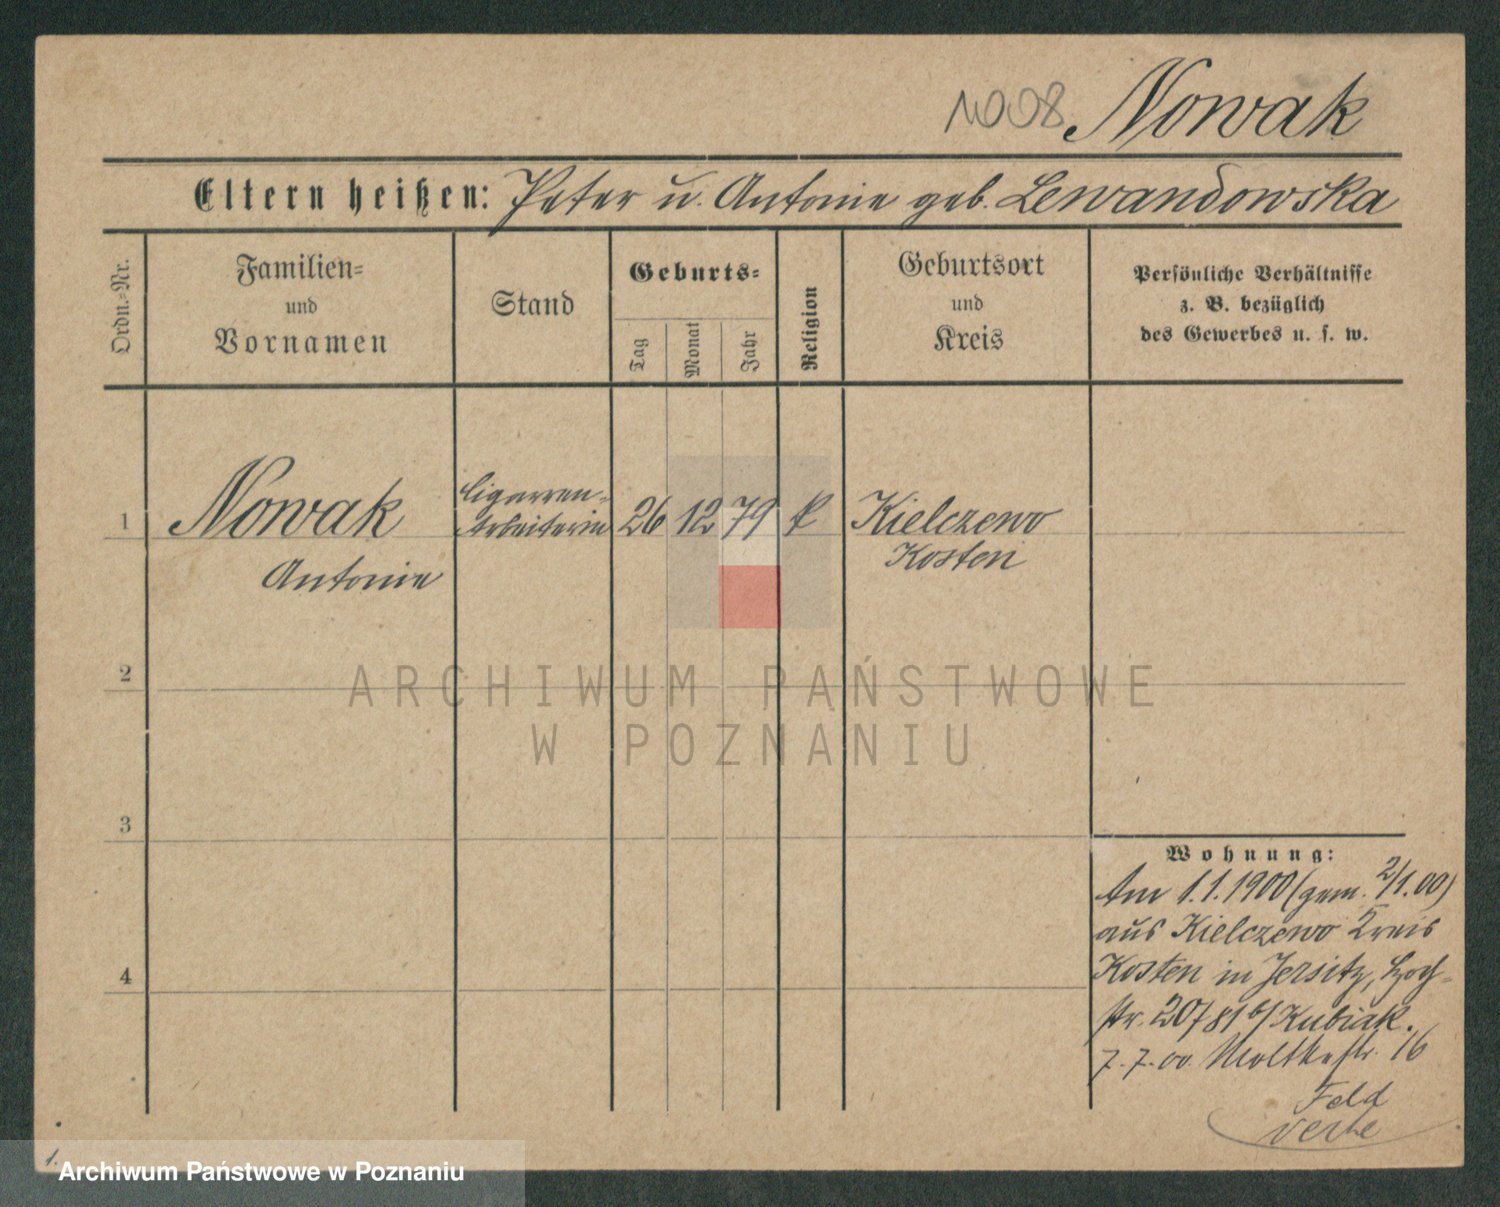 1008 Nowak
Eltern heißen: Peter u. Antonie geb. Lewandowska
Ordn.-Nr.
Familien-
und
Vornamen
Stand
Geburts-
Tag
Monat
Jahr
Religion
Geburtsort
und
Kreis
Persönliche Verhältnisse
z. B. bezüglich
des Gewerbes u. s. w.
1 Nowak
Antonie
Cigarren-
Arbeiterin
26 12 79 k
Kielczewo
Kosten
2
3
4
ARCHIWUM PAŃSTWOWE
W POZNANIU
Wohnung:
Am 1.1.1900 (gem. 2/1.00)
aus Kielczewo Kreis
Kosten in Jersitz, Hoch-
str. 20/81 b/ Kubiak.
7.7.00 Moltkestr. 16
Feld
1.
Archiwum Państwowe w Poznaniu